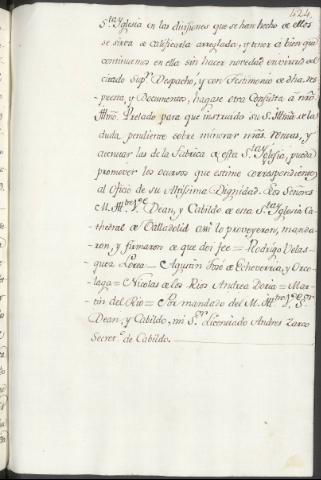 424.
S.ta Yglesia en las divisiones que se han hecho de ellos
se sirva de calificarla arreglada, y tener á bien que
continuemos en ella sin hacer novedad en virtud del
citado Sup.r Despacho, y con Testimonio de dha. res-
puesta, y Documentos, hagase otra Consulta á nrô.
Illmô. Prelado para que instruido su S. Illmâ. de la
duda pendiente sobre minorar nrâs. rentas, y
acrecentar las de la Fabrica de esta S.ta Yglesia, pueda
promover los ocursos que estime correspondientes
al Oficio de su Altissima Dignidad. Los Señores
M. Ill.tre V.e Dean, y Cabildo de esta S.ta Yglesia Ca-
thedral de Valladolid assi lo proveyeron, manda-
ron, y firmaron de que doi fee = Rodrigo Velas-
quez Lorea = Agustin José de Echeverria, y Orco-
laga = Nicolas de los Rios Andrea Doria = Mar-
tin del Rio = Por mandado del M. Ill.tre V.e S.or
Dean, y Cabildo, mi S.or Licenciado Andres Zarco
Secret.o de Cabildo.